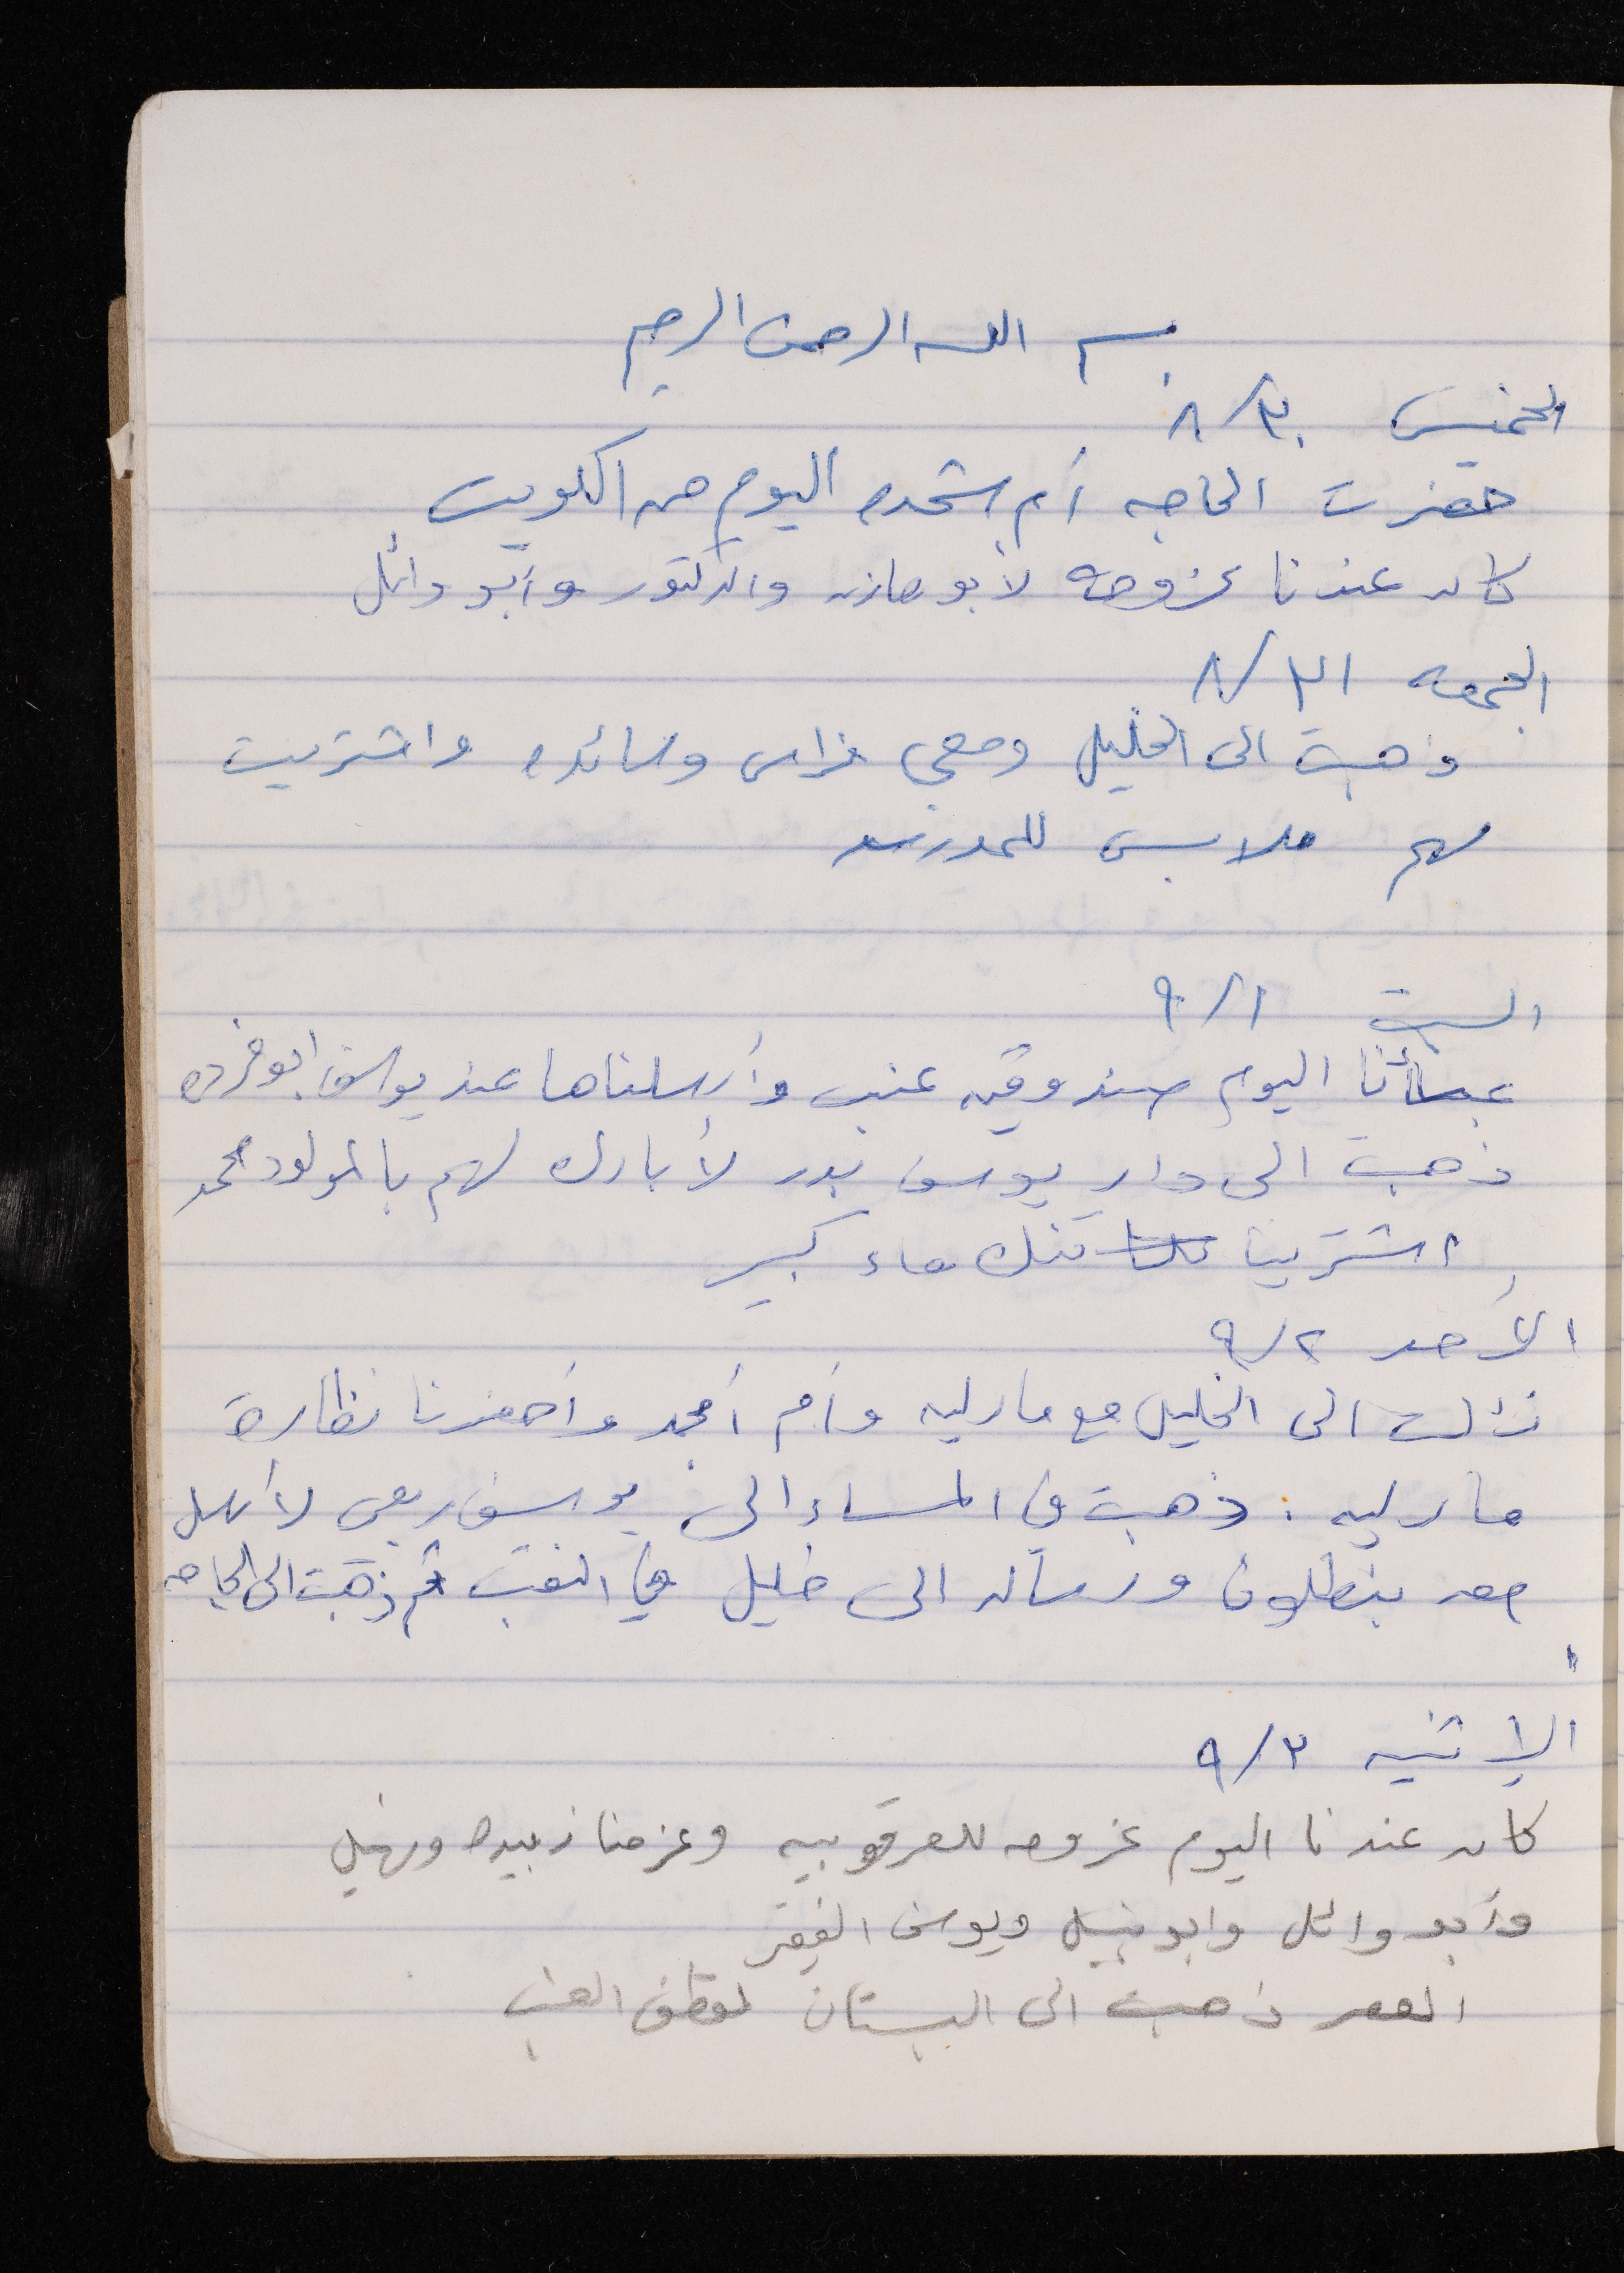 بسم الله الرحمن الرحيم
الخميس ٨/٣٠
حضرت الحاجه أم شحده اليوم من الكويت
كان عندنا عزومه لأبو مازن والدكتور وأبو وائل
الجمعه ٨/٣١
ذهبت الى الخليل ومعي فراس ورائده واشتريت
لهم ملابس للمدرسه
السبت ٩/١
عبأنا اليوم صندوقين عنب وأرسلناها عند يوسف ابو فرده
ذهبت الى دار يوسف بدر لأبارك لهم بالمولود محمد
اشترينا تنك ماء كبير
الأحد ٩/٢
نزلت الى الخليل مع مارليه وأم أمجد وأحضرنا نظارة
مارليه . ذهبت في المساء الى يوسف ربعي لأرسل
معه بنطلون ورساله الى خليل في النقب ثم ذهبت الى الحاجه
الإثنين ٩/٣
كان عندنا اليوم عزومه للعرقوبيه وعزمنا زبيده ونهيل
وأبو وائل وابو نبيل ويوسف الفقير
العصر ذهبت الى البستان لقطف العنب